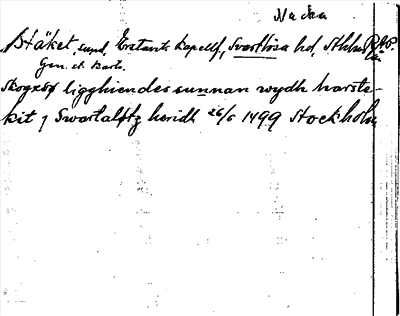 Nacka
Stäket, sund, Erstaviks kapellf, Svartlösa hd, Sthlms
Gen. st. kart.
skogxsø ligghiendes sunnan wydh harste-
kit j Swartaløtz heridh 26/6 1499 Stockholm